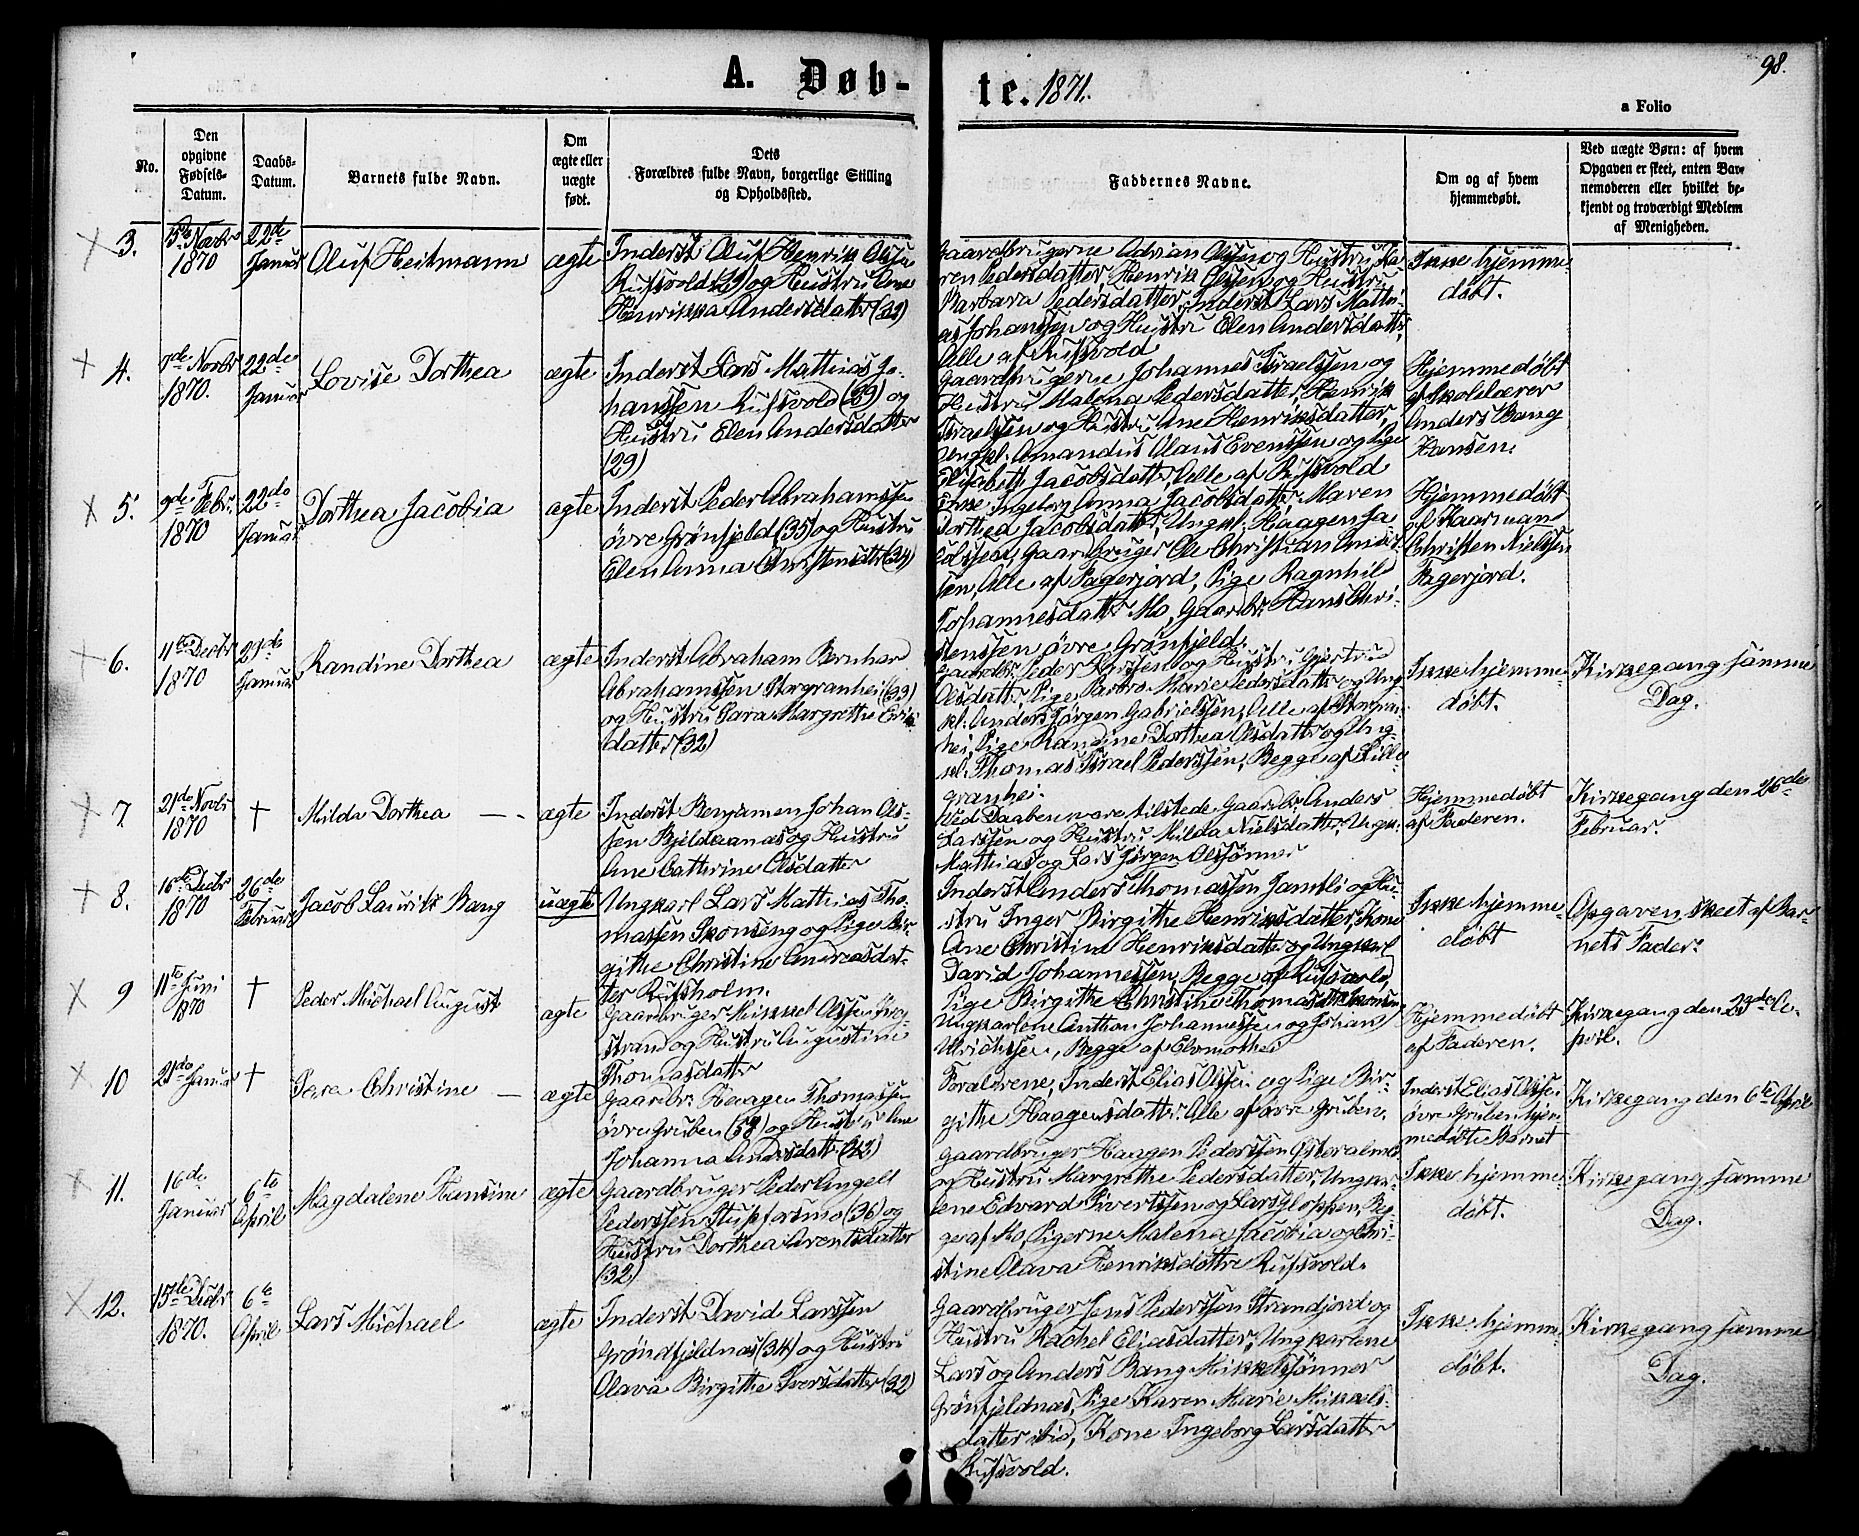 98.
A. Døb-
te. 1871.
a Folio
No.
Den
opgivne
Fødsels-
Datum.
Daabs-
Datum.
Barnets fulde Navn.
Om
ægte eller
uægte
født.
Dets
Forældres fulde Navn, borgerlige Stilling
og Opholdssted.
Faddernes Navne.
Om og af hvem
hjemmedøbt.
Ved uægte Børn: af hvem
Opgaven er skeet, enten Bar-
nemoderen eller hvilket be-
kjendt og troværdigt Medlem
af Menigheden.
3.
Novbr
1870
22de
Januar
Oluf Heitmann
ægte
Inderst Oluf Henrik Olsen
Rufsvold og Hustru Ane
Henrikka Andersdatter (33)
Gaardbrugerne Adrian Olsen og Hustru Ka-
ren Pedersdatter, Henrik Olsen og Hustru
Barbara Pedersdatter, Inderst Lars Matthi-
as Johanssen og Hustru Elen Andersdatter,
Alle af Rufsvold
Ikke hjemme-
døbt.
4.
Novbr
1870.
22de
Januar
Lovise Dorthea
ægte
Inderst Lars Mathias Jo-
hanssen Rufsvold (39) og
Hustru Elen Andersdatter
(29)
Gaardbrugerne Johannes Israelssen og
Hustru Malena Pedersdatter, Henrik
Israelssen og Hustru Ane Henriksdatter,
Ungk. Amandus Olaus Evenssen og Pige
Elisabeth Jacobsdatter, Alle af Rufsvold
Hjemmedøbt
af Skolelærer
Anders Bang
Hansen.
5.
9de Febr.
1870
22de
Januar
Dorthea Jacobia
ægte
Inderst Peder Abrahamssen
øvre Grønfjeld (35) og Hustru
Elen Anna Christensdatr (34)
Ingeborg Anna Jacobsdatter, Maren
Dorthea Jacobsdattr, Ungk. Haagen Ja-
cobssen, Gaardbruger Ole Christian
sen, Alle af Fagerjord, Pige Ragnhild
Johannesdatter Mo, Gaardbr. Hans Chri-
stenssen øvre Grønfjeld.
Hjemmedøbt
af Kaarmand
Christen Nielssen
Fagerjord.
6.
11te Decbr
1870
Januar
Randine Dorthea
ægte
Inderst Abraham Bernhard
Abrahamssen Storgranhei (33)
og Hustru Sara Margrethe Eriks
datter (32)
Gaardbr. Peder Larssen og Hustru Gjertrud
Olsdattr, Pige Barbro Marie Pedersdatter og Ung-
k. Anders Jörgen Gabrielssen, Alle af Storgran-
hei, Pige Randine Dorthea Olsdattr og Ung-
k. Thomas Israel Pederssen, Begge af Lille-
granhei.
Ikke hjemme-
døbt.
Kirkegang samme
Dag.
7.
21de Novbr
1870
†
Milda Dorthea
ægte
Inderst Benjamin Johan Ols-
sen Bjeldaanæs og Hustru
Ane Cathrine Olsdatter
Ved Daaben vare tilstede Gaardbr. Anders
Larssen og Hustru Milda Nielsdatter, Ungk.
Mathias og Lars Jörgen Olssönner
Hjemmedøbt
af Faderen.
Kirkegang den 26de
Februar.
8.
16de Decbr
1870
26de
Februar
Jacob Laurits Bang
uægte
Ungkarl Lars Mathias Tho-
massen Skonseng og Pige Bir-
githe Christine Andreasdat-
ter Rufsholm.
Inderst Anders Thomassen Jamtli og Hu-
stru Inger Birgithe Henriksdatter, Kone
Ane Christine Henriksdatter og Ungkarl
David Johannessen, Begge af Rufsvold,
Pige Birgithe Christine Thomasdtr
Ikke hjemme-
døbt
Opgaven skeet af Bar-
nets Fader.
9
11te Juni
1870
†
Peder Michael August
ægte
Gaardbruger Mikkel Olssen
strand og Hustru Augustine
Thomasdatter
Ungkarlene Anthon Johannessen og Johan
Ulrichssen, Begge af
Hjemmedøbt
af Faderen.
Kirkegang den 23de A-
pril.
10
21de Januar
†
Sara Christine
ægte
Gaardbr. Haagen Thomassen
övre Gruben (58) og Hustru Ane
Johanna Andersdattr (42)
Forældrene, Inderst Elias Olssen og Pige Bir-
githe Haagensdatter, Alle af övre Gruben.
Inderst Elias Olssen
övre Gruben hjem-
medöbte Barnet
Kirkegang den 6te April
11.
16de
Januar
6te
April
Magdalene Hansine
ægte
Gaardbruger Peder Angell
Pederssen Stupforsmo (36) og
Hustru Dorthea Arentsdatter
(32)
Gaardbruger Haagen Pederssen
og Hustru Margrethe Pedersdatter, Ungkar-
lene Edvard Sivertssen og Lars Gloppen, Beg-
ge af Mo, Pigerne Malena Jacobia og Chri-
stine Olava Henriksdöttre Rufsvold.
Ikke hjemme-
døbt.
Kirkegang samme
Dag.
12.
15de Decbr
1870.
6te
April
Lars Michael
ægte
Inderst David Larssen
Grönfjeldnæs (34) og Hustru
Olava Birgithe Iversdatter (32)
Gaardbruger Jens Pederssen Strandjord og
Hustru Rachel Eliasdatter, Ungkarlene
Lars og Anders Bang Mikkelssönner
Grönfjeldnæs, Pige Karen Marie Mikkels-
datter ibid, Kone Ingeborg Larsdatter
Rufsvold.
Ikke hjemme-
døbt.
Kirkegang samme
Dag.